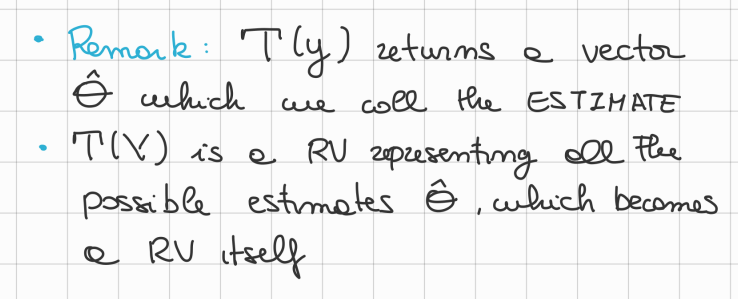 • Remark: T(y) returns a vector
θ̂ which we call the ESTIMATE
• T(Y) is a RV representing all the
possible estimates θ̂, which becomes
a RV itself